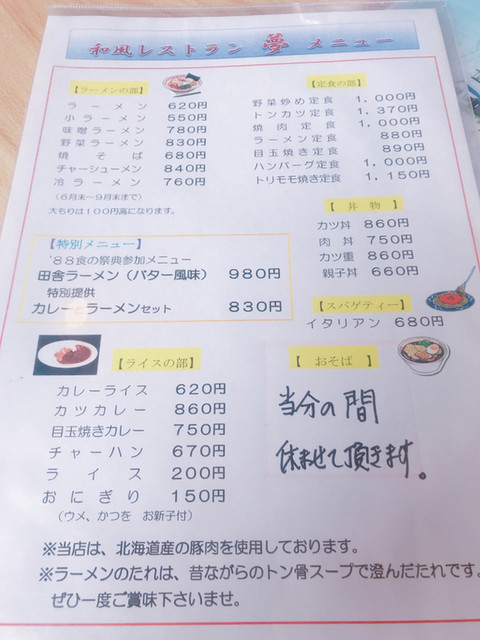 和風レストラン 夢 メニュー
【ラーメンの部】
ラーメン 620円
小ラーメン 550円
味噌ラーメン 780円
野菜ラーメン 830円
焼そば 680円
チャーシューメン 840円
冷ラーメン 760円
（6月末〜9月末まで）
大もりは100円高になります。
【定食の部】
野菜炒め定食 1,000円
トンカツ定食 1,370円
焼肉定食 1,000円
ラーメン定食 880円
目玉焼き定食 890円
ハンバーグ定食 1,000円
トリモモ焼き定食 1,150円
【丼物】
カツ丼 860円
肉丼 750円
カツ重 860円
親子丼 660円
【特別メニュー】
'88食の祭典参加メニュー
田舎ラーメン（バター風味） 980円
特別提供
カレーとラーメンセット 830円
【スパゲティー】
イタリアン 680円
【ライスの部】
カレーライス 620円
カツカレー 860円
目玉焼きカレー 750円
チャーハン 670円
ライス 200円
おにぎり 150円
（ウメ、かつを お新子付）
【おそば】
当分の間
休ませて頂きます。
※当店は、北海道産の豚肉を使用しております。
※ラーメンのたれは、昔ながらのトン骨スープで澄んだたれです。
ぜひ一度ご賞味下さいませ。